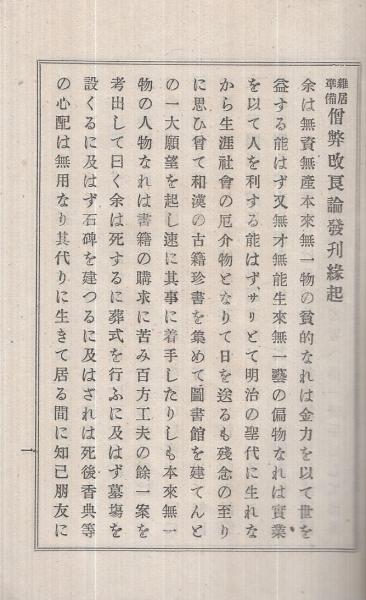 雜居準備僧弊改良論發刊緣起
余は無資無產本來無一物の貧的なれは金力を以て世を
益する能はず又無才無能生來無一藝の偏物なれは實業
を以て人を利する能はず、サリとて明治の聖代に生れな
から生涯社會の厄介物となりて日を送るも殘念の至り
に思ひ曾て和漢の古籍珍書を集めて圖書館を建てんと
の一大願望を起し速に其事に着手したりしも本來無一
物の人物なれは書籍の購求に苦み百方工夫の餘一案を
考出して曰く余は死するに葬式を行ふに及はず墓塲を
設くるに及はず石碑を建つるに及はされは死後香典等
の心配は無用なり其代りに生きて居る間に知己朋友に
一